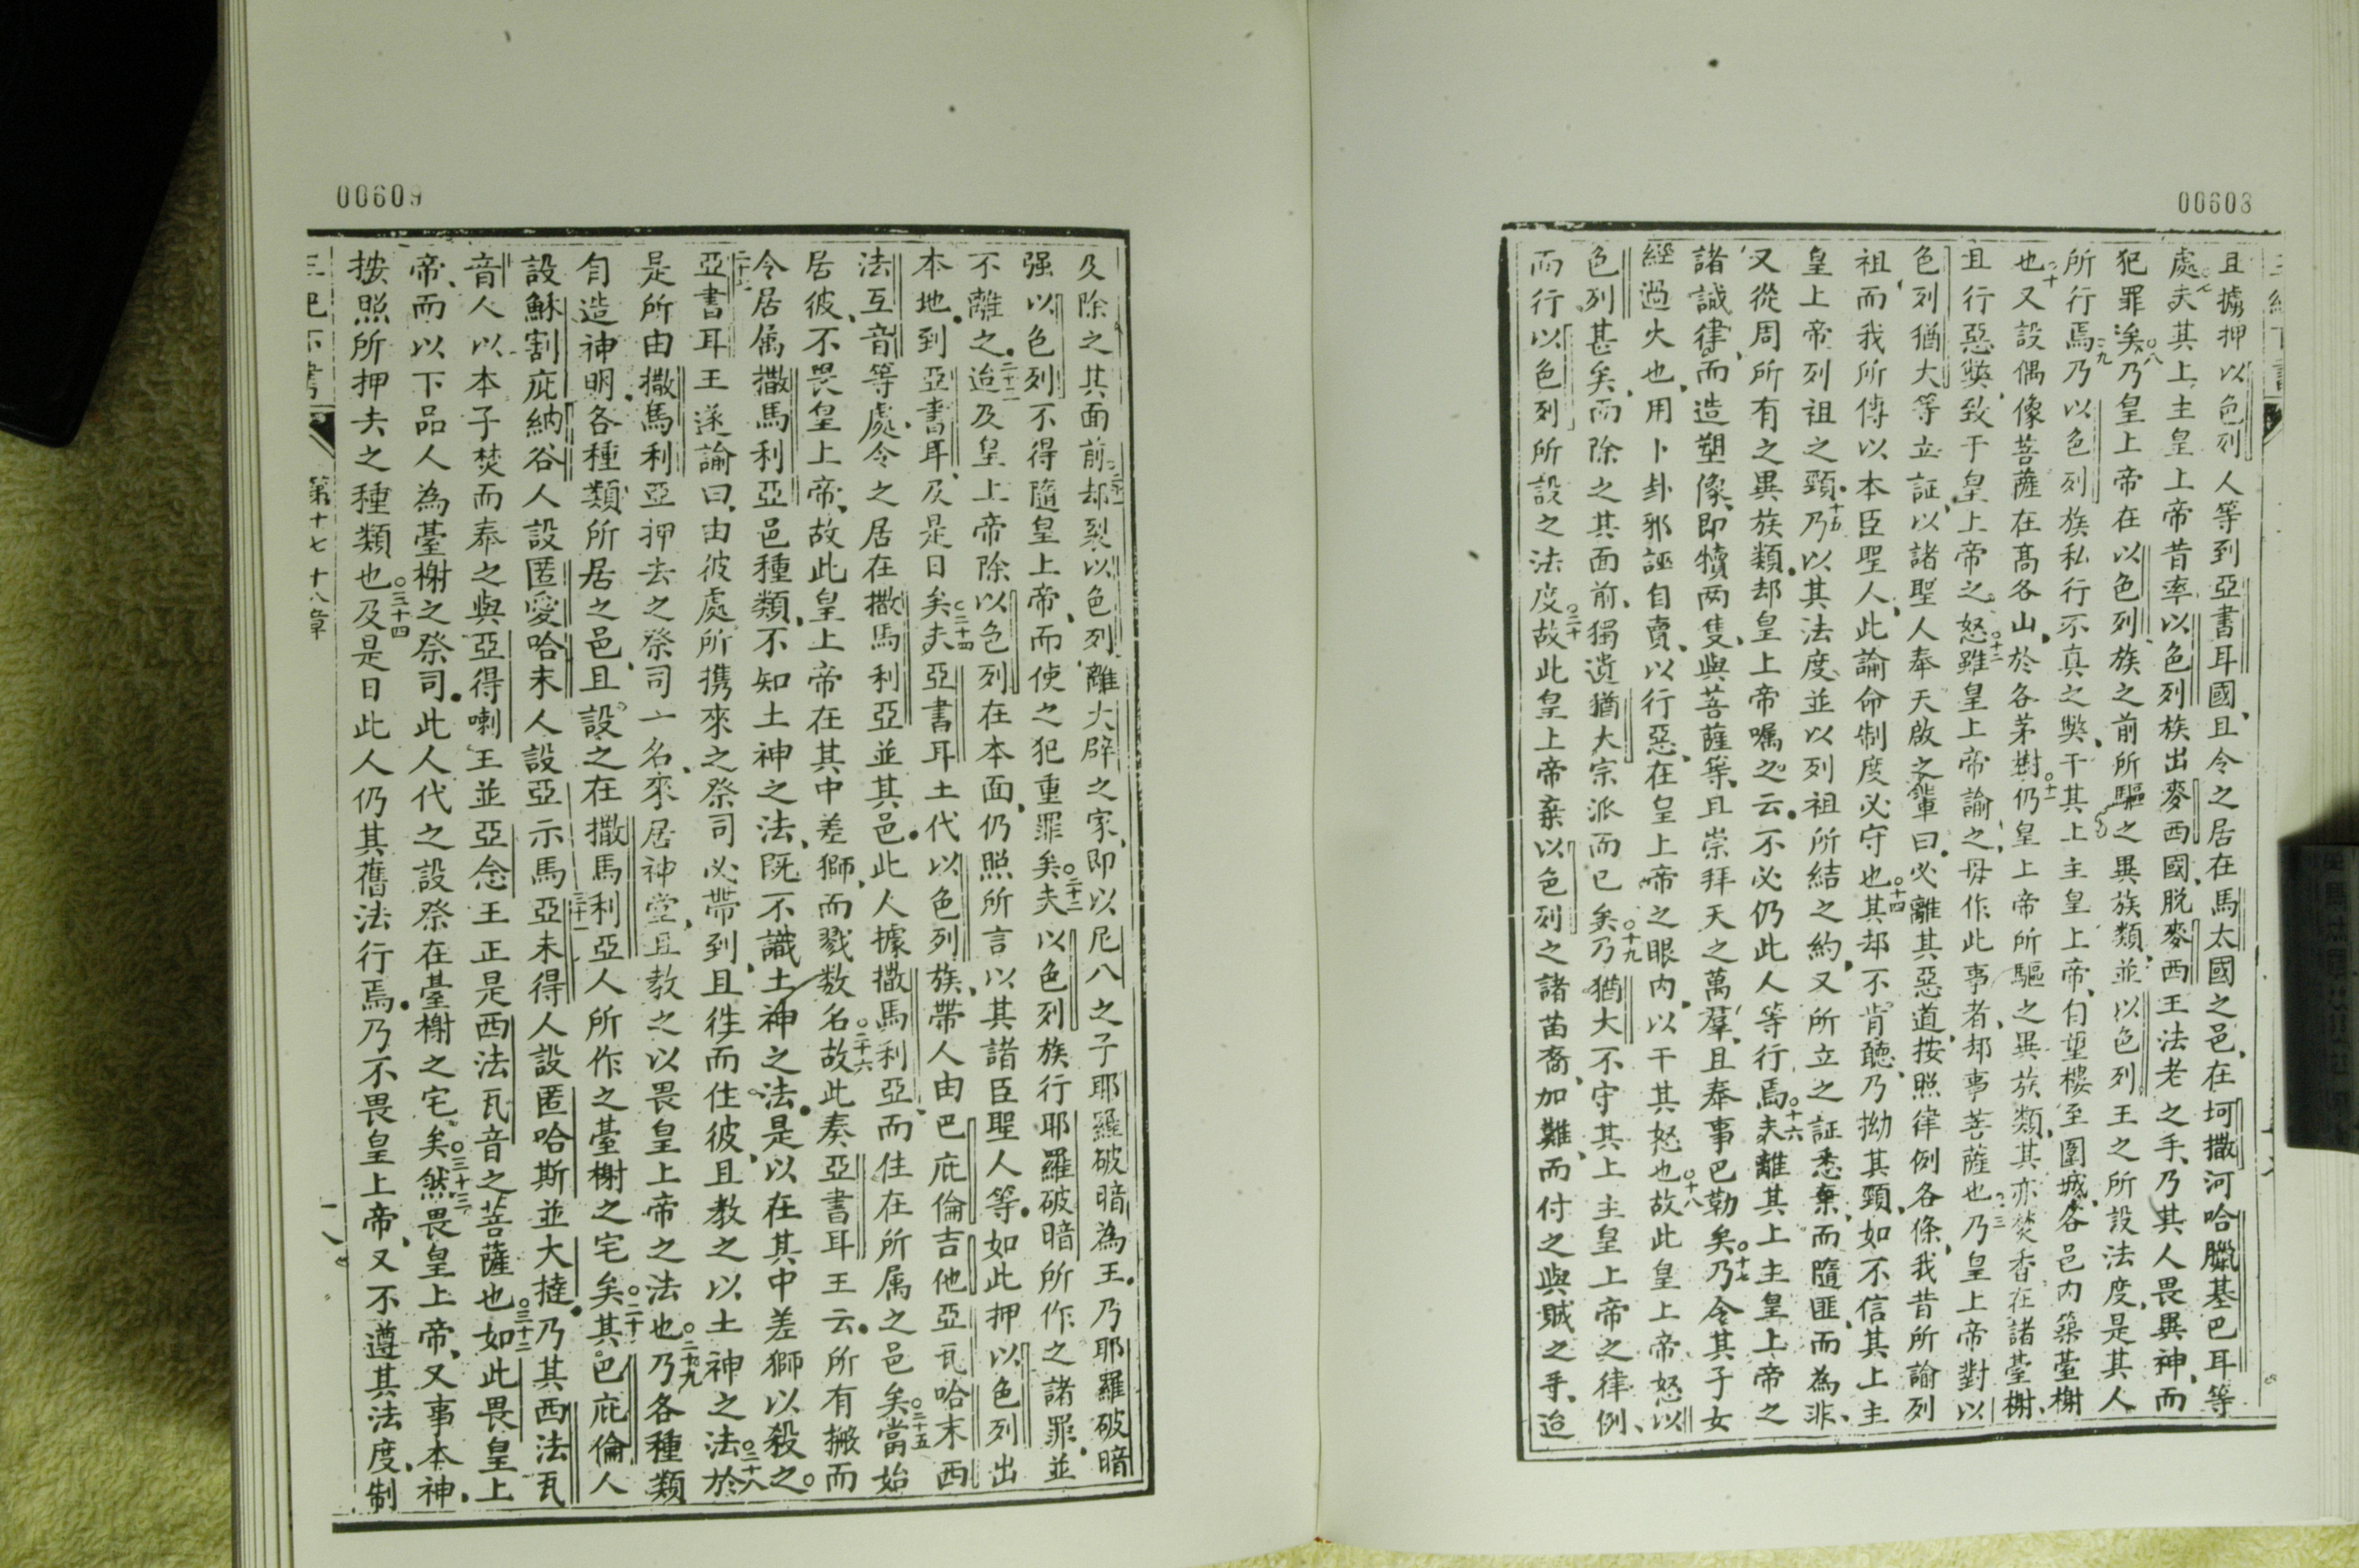 00608
且擄押以色列人等到亞書耳國、且令之居在馬太國之邑、在坷撒河哈臘基巴耳等
處、○七夫其上主皇上帝昔率以色列族出麥西國、脫麥西王法老之手、乃其人畏異神、而
犯罪矣、○八乃皇上帝在以色列族之前所驅之異族類、並以色列王之所設法度、是其人
所行焉、○九乃以色列族私行不真之弊、干其上主皇上帝、自望樓至圍城、各邑內築臺榭
也、○十又設偶像菩薩在高各山、於各茅對、○十一仍皇上帝所驅之異族類、其亦焚香在諸臺榭、
且行惡獘、致干皇上帝之怒、○十二雖皇上帝諭之、毋作此事者、却事菩薩也、○十三乃皇上帝對以
色列猶大等立証、以諸聖人奉天啟之輩曰、必離其惡道、按照律例各條、我昔所諭列
祖、而我所傳以本臣聖人、此諭命制度必守也、○十四其却不肯聽、乃拗其頸、如不信其上主
皇上帝列祖之頸、○十五乃以其法度並以列祖所結之約、又所立之証悉棄、而隨匪而為非、
又從周所有之異族類、却皇上帝嘱之云、不必仍此人等行焉、○十六夫離其上主皇上帝之
諸誡律、而造塑像、即犢两隻、與菩薩等、且崇拜天之萬羣、且奉事巴勒矣、○十七乃令其子女
經過火也、用卜卦邪誣自賣、以行惡、在皇上帝之眼内、以干其怒也、○十八故此皇上帝怒以
色列甚矣、而除之其面前、獨遗猶大宗派而已矣、○十九乃猶大不守其上主皇上帝之律例、
而行以色列所設之法度、○二十故此皇上帝棄以色列之諸苗裔、加難、而付之與賊之手、迨
00609
及除之其面前、○二十一却裂以色列、離大辟之家、即以尼八之子耶羅破暗為王、乃耶羅破暗
强以色列不得隨皇上帝、而使之犯重罪矣、○二十二夫以色列族行耶羅破暗所作之諸罪、並
不離之、○二十三迨及皇上帝除以色列在本面、仍照所言以其諸臣聖人等、如此押以色列出
本地、到亞書耳、及是日矣、○二十四夫亞書耳土代以色列族、帶人由巴庇倫吉他亞瓦哈末西
法互音等處、令之居在撒馬利亞並其邑、此人據撒馬利亞、而住在所属之邑矣、○二十五當始
居彼、不畏皇上帝、故此皇上帝在其中差獅、而戮数名、○二十六故此奏亞書耳王云、所有搬而
令居属撒馬利亞邑種類、不知土神之法、既不識土神之法、是以在其中差獅以殺之。
○二十七亞書耳王遂諭曰、由彼處所携來之祭司必帶到、且徃而住彼、且教之以土神之法、○二十八於
是所由撒馬利亞押去之祭司一名、來居神堂、且教之以畏皇上帝之法也、○二十九乃各種類
自造神明、各種類所居之邑、且設之在撒馬利亞人所作之臺榭之宅矣、○三十其巴庇倫人
設穌割庇納谷人設匿愛哈末人設亞示馬、○三十一亞未得人設匿哈斯並大撻、乃其西法瓦
音人以本子焚而奉之與亞得喇王並亞念王正是西法瓦音之菩薩也、○三十二如此畏皇上
帝、而以下品人為臺榭之祭司、此人代之設祭在臺榭之宅矣、○三十三然畏皇上帝、又事本神、
按照所押去之種類也、○三十四及是日此人仍其舊法行焉、乃不畏皇上帝、又不遵其法度、制
第十七十八章